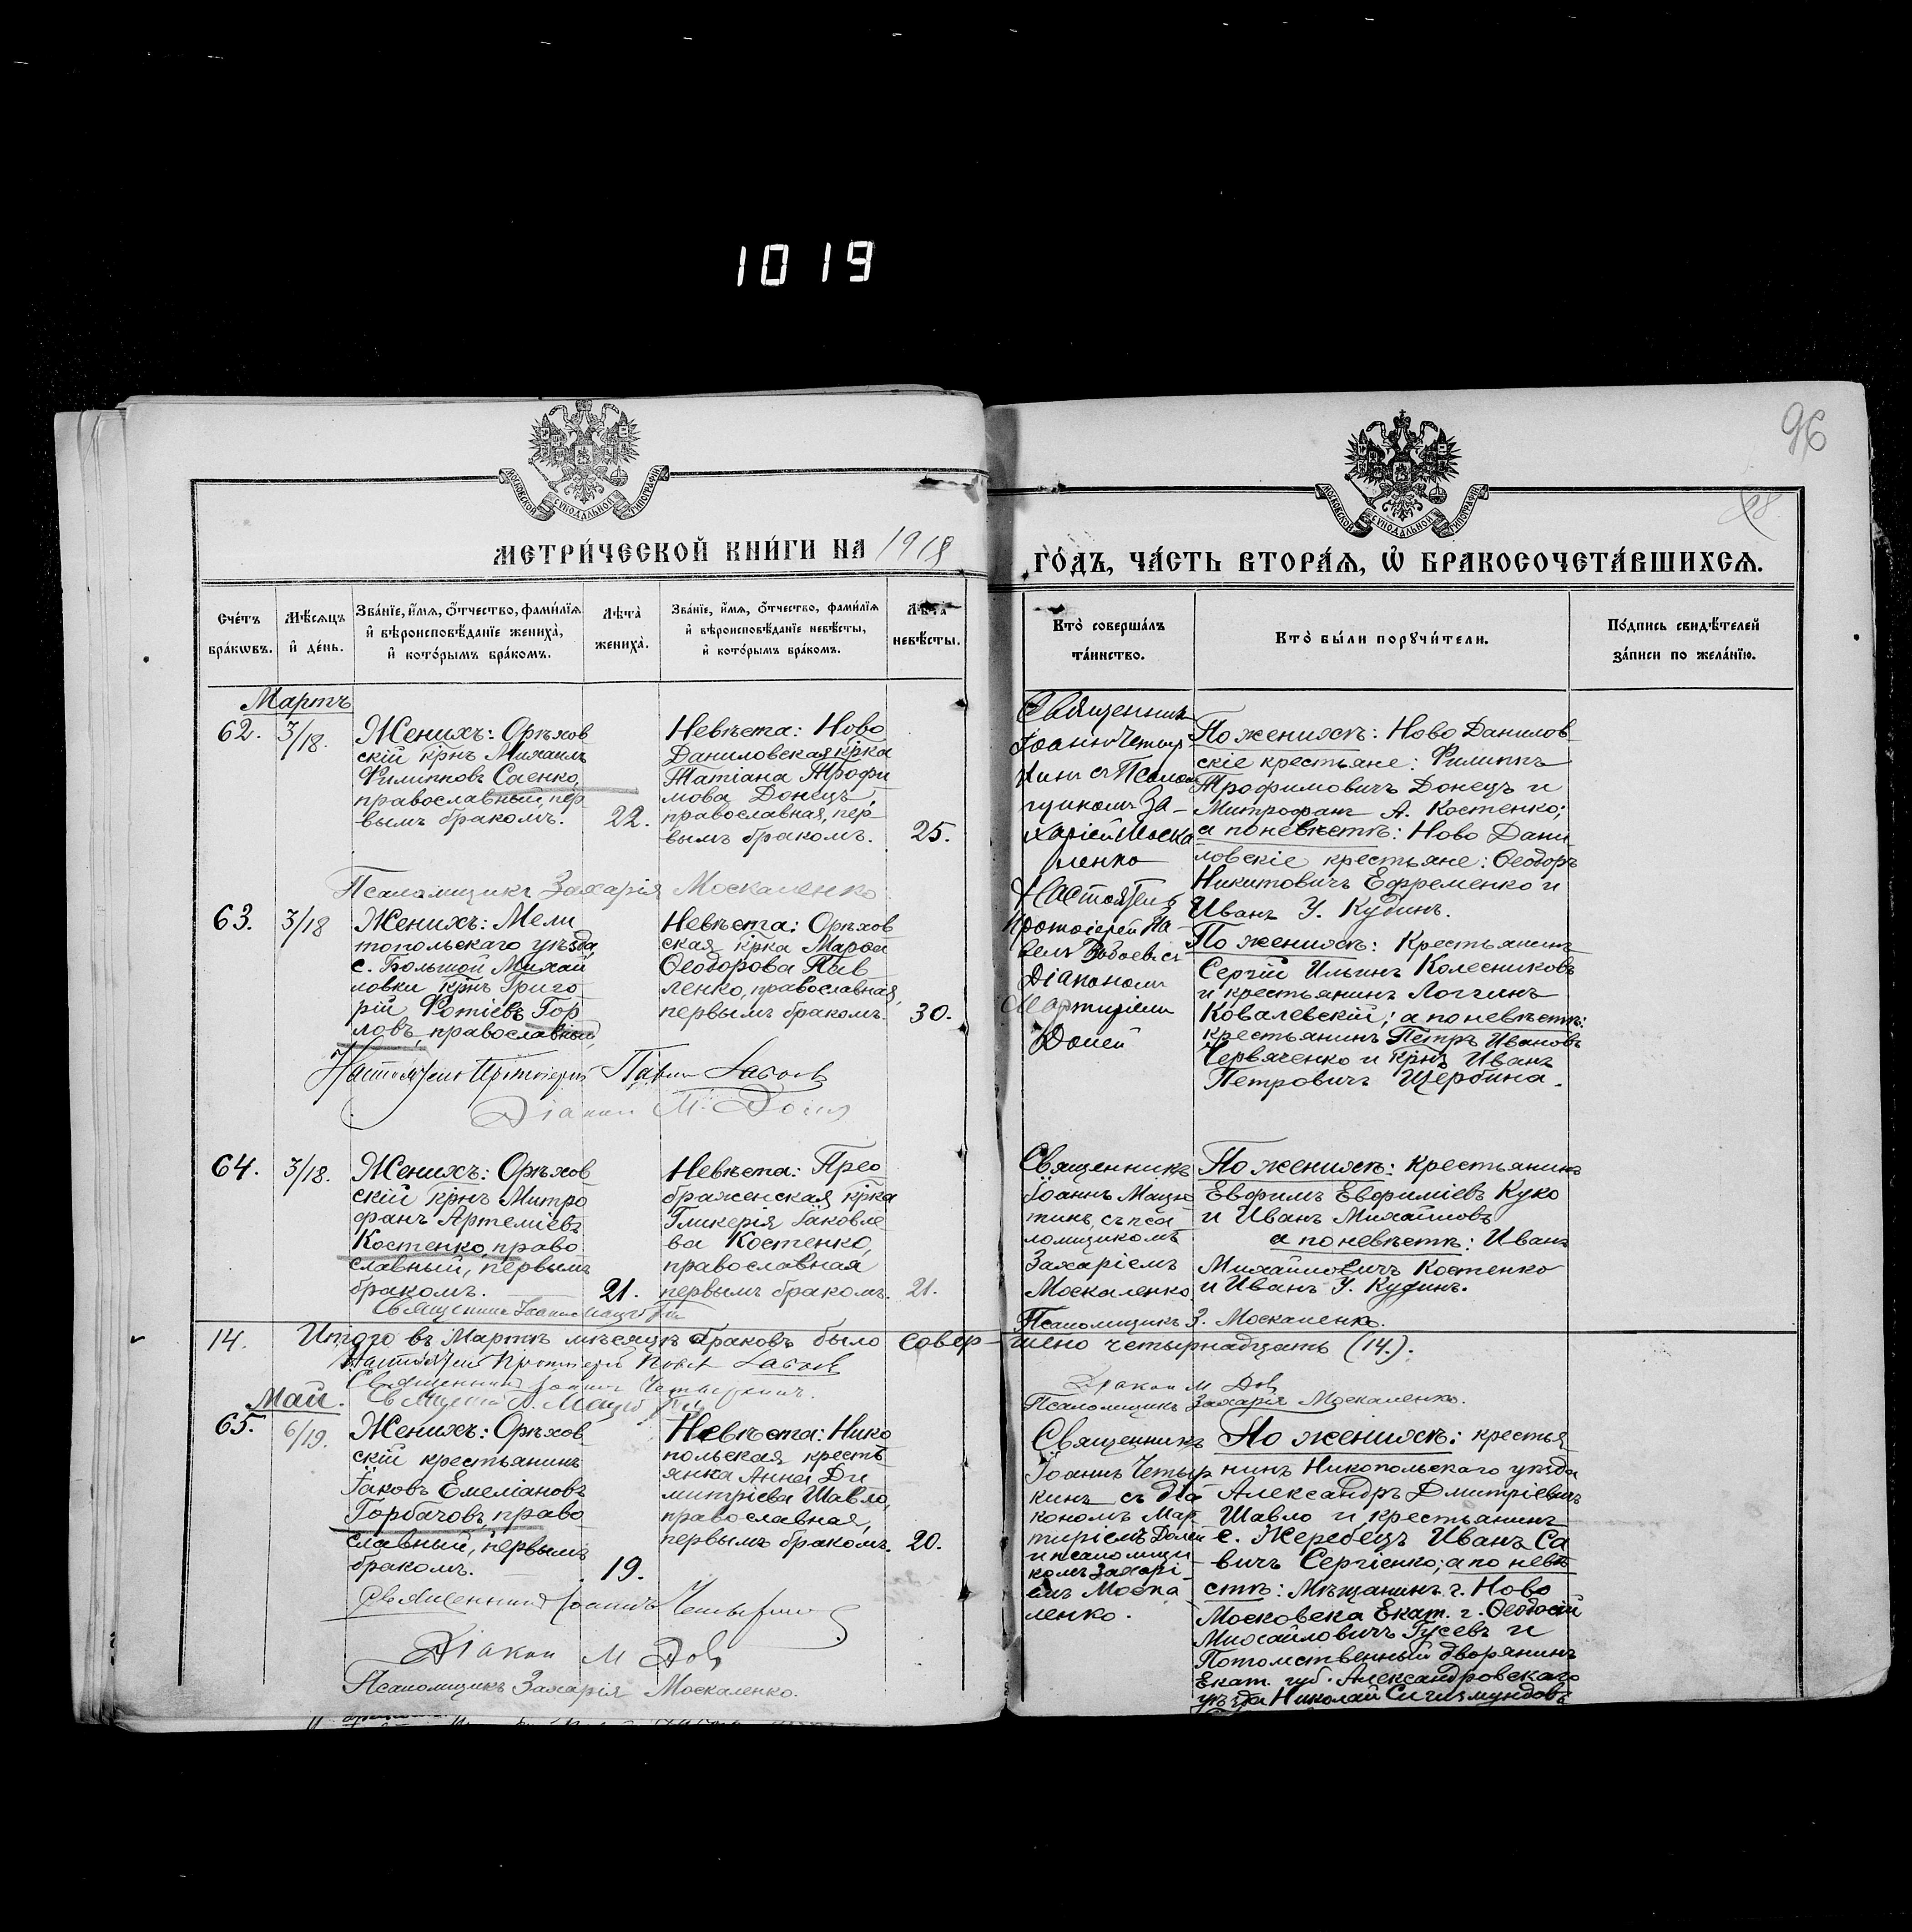 1019
96
МОСКОВСКОЙ СУНОДАЛЬНОЙ ТИПОГРАФІИ
МОСКОВСКОЙ СУНОДАЛЬНОЙ ТИПОГРАФІИ
МЕТРИ́ЧЕСКОЙ КНИ́ГИ НА 1918
ГО́ДЪ, ЧА́СТЬ ВТОРА́Ѧ, Ѡ҆ БРАКОСОЧЕТА́ВШИХСѦ.
Сче́тъ бра́кѡвъ.
Мѣ́сѧцъ и҆ де́нь.
Зва́нїе, и҆́мѧ, ѻ҆́тчество, фами́лїѧ и҆ вѣроисповѣ́данїе жениха̀, и҆ кото́рымъ бра́комъ.
Лѣ́та̀ жениха̀.
Зва́нїе, и҆́мѧ, ѻ҆́тчество, фами́лїѧ и҆ вѣроисповѣ́данїе невѣ́сты, и҆ кото́рымъ бра́комъ.
Лѣ́та̀ невѣ́сты.
Кто̀ соверша́лъ та́инство.
Кто̀ бы́ли порꙋчи́тели.
По́дпись свидѣ́телей за́писи по жела́нїю.
Мартъ
62. 3/18.
Женихъ: Орѣхов
скій крнъ Михаилъ
Филипповъ Саенко,
православный, пер
вымъ бракомъ. 22.
Невѣста: Ново
Даниловская крка
Татіана Трофи
мова Донецъ,
православная, пер-
вымъ бракомъ. 25.
Священникъ
Іоаннъ Четыр
кинъ съ Псалом
щикомъ За-
харіей Моска
ленко
По женихѣ: Ново Данилов
скіе крестьяне: Филиппъ
Трофимовичъ Донецъ и
Митрофанъ А. Костенко;
а по невѣстѣ: Ново Дани
ловскіе крестьяне: Ѳеодоръ
Никитовичъ Ефременко и
Иванъ У. Кудинъ.
Псаломщикъ Захарія Москаленко
63. 3/18
Женихъ: Мели
топольскаго уѣзда,
с. Большой Михай
ловки крнъ Григо
рій Фотіевъ Гор
ловъ, православный,
Невѣста: Орѣхов
ская крка Марѳа
Ѳеодорова Пав
ленко, православная,
первымъ бракомъ. 30.
Настоятель
Протоіерей Па
велъ
Діакономъ
Мартиріемъ
Долей
По женихѣ: Крестьянинъ
Сергій Ильинъ Колесниковъ
и крестьянинъ Логгинъ
Ковалевскій; а по невѣстѣ:
крестьянинъ Петръ Ивановъ
Червяченко и крнъ Иванъ
Петровичъ Щербина.
Настоятель Протоіерей Павелъ
Діаконъ М. Доля
64. 3/18.
Женихъ: Орѣхов
скій крнъ Митро
фанъ Артеміевъ
Костенко, право
славный, первымъ
бракомъ. 21.
Невѣста: Прео
браженская крка
Гликерія Іаковле
ва Костенко,
православная
первымъ бракомъ. 21.
Священникъ
Іоаннъ Мацю
тинъ, съ пса
ломщикомъ
Захаріемъ
Москаленко
По женихѣ: крестьянинъ
Евфимъ Евфиміевъ Куко
и Иванъ Михайловъ
а по невѣстѣ: Иванъ
Михайловичъ Костенко
и Иванъ У. Кудинъ.
Священникъ Іоаннъ Мацютинъ
Псаломщикъ З. Москаленко.
14. Итого въ Мартѣ мѣсяцѣ браковъ было совер-
шено четырнадцать (14.).
Настоятель Протоіерей Павелъ
Священникъ Іоаннъ Четыркинъ.
Священникъ І. Мацютинъ
Діаконъ М. Доля
Псаломщикъ Захарія Москаленко.
Май.
65. 6/19.
Женихъ: Орѣхов
скій крестьянинъ
Іаковъ Емеліановъ
Горбачовъ, право
славный, первымъ
бракомъ. 19.
Невѣста: Нико
польская кресть
янка Анна Ди
митріева Шавло,
православная,
первымъ бракомъ. 20.
Священникъ
Іоаннъ Четыр
кинъ съ діа
кономъ Мар
тиріемъ Долей
и псаломщи
комъ Захарі-
емъ Моска
ленко.
По женихѣ: крестья
нинъ Никопольскаго уѣзда
Александръ Дмитріевичъ
Шавло и крестьянинъ
с. Жеребецъ Иванъ Са
вичъ Сергіенко; а по невѣ
стѣ: Мѣщанинъ г. Ново
Московска Екат. г. Ѳеодосій
Михайловичъ Гусевъ и
Потомственный дворянинъ
Екат. губ. Александровскаго
уѣзда Николай Сигизмундовъ
Священникъ Іоаннъ Четыркинъ
Діаконъ М Доля
Псаломщикъ Захарія Москаленко.